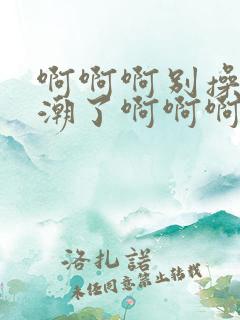 啊啊啊别操
潮了啊啊啊
洛扎諾
未任同意禁止转载